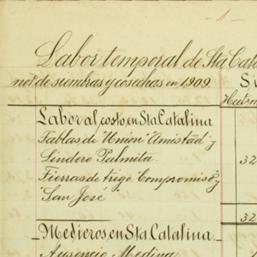 -1-
Labor temporal de Sta Cata
not de siembras y cosechas en 1909.
Labor al costo en Sta Catalina
Tablas de "Union" "Amistad" y
Sendero Palmita
32
Tierras de trigo "Compromiso" y
"San José"
32
Medieros en Sta Catalina
Medina